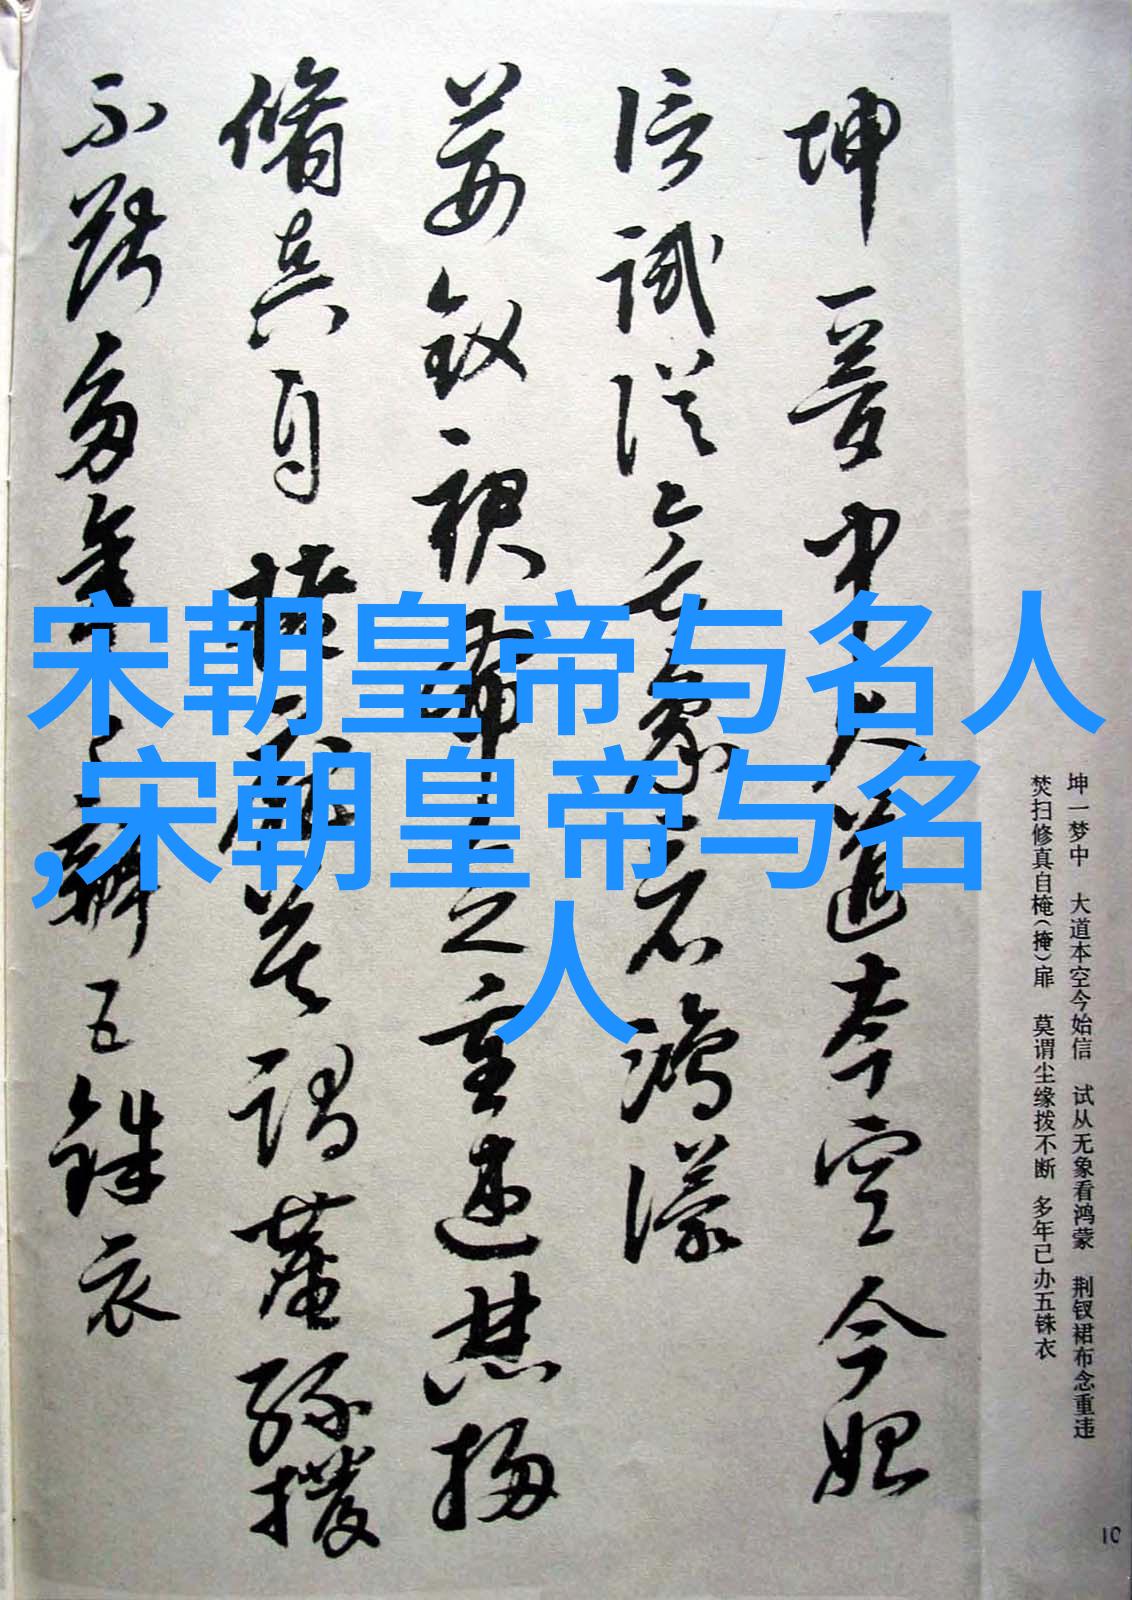 坤一梦中大道本空今始
信试从无象看鸿濛
荆钗裙布念重违焚扫
修真自掩扉莫谓尘缘拨
不断多年已办五铢衣
宋朝皇帝与名人
,宋朝皇帝与名
人
坤一梦中 大道本空今始信 试从无象看鸿蒙 荆钗裙布念重违
焚扫修真自掩(掩)扉 莫谓尘缘拨不断 多年已办五铢衣
10